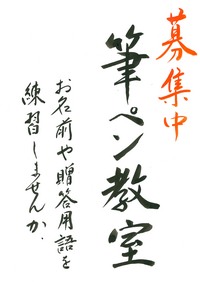 募集中
筆ペン教室
お名前や贈答用語を
練習しませんか.